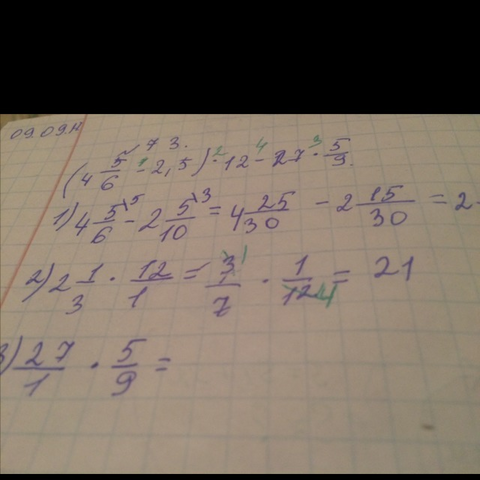 09.09.11
№ 73.
(4 5/6 - 2,5) · 12 - 27 · 5/9.
1) 4 5/6 \5 - 2 5/10 \3 = 4 25/30 - 2 15/30 = 2
2) 2 1/3 · 12/1 = 3/7 · 1/12 = 21
3) 27/1 · 5/9 =